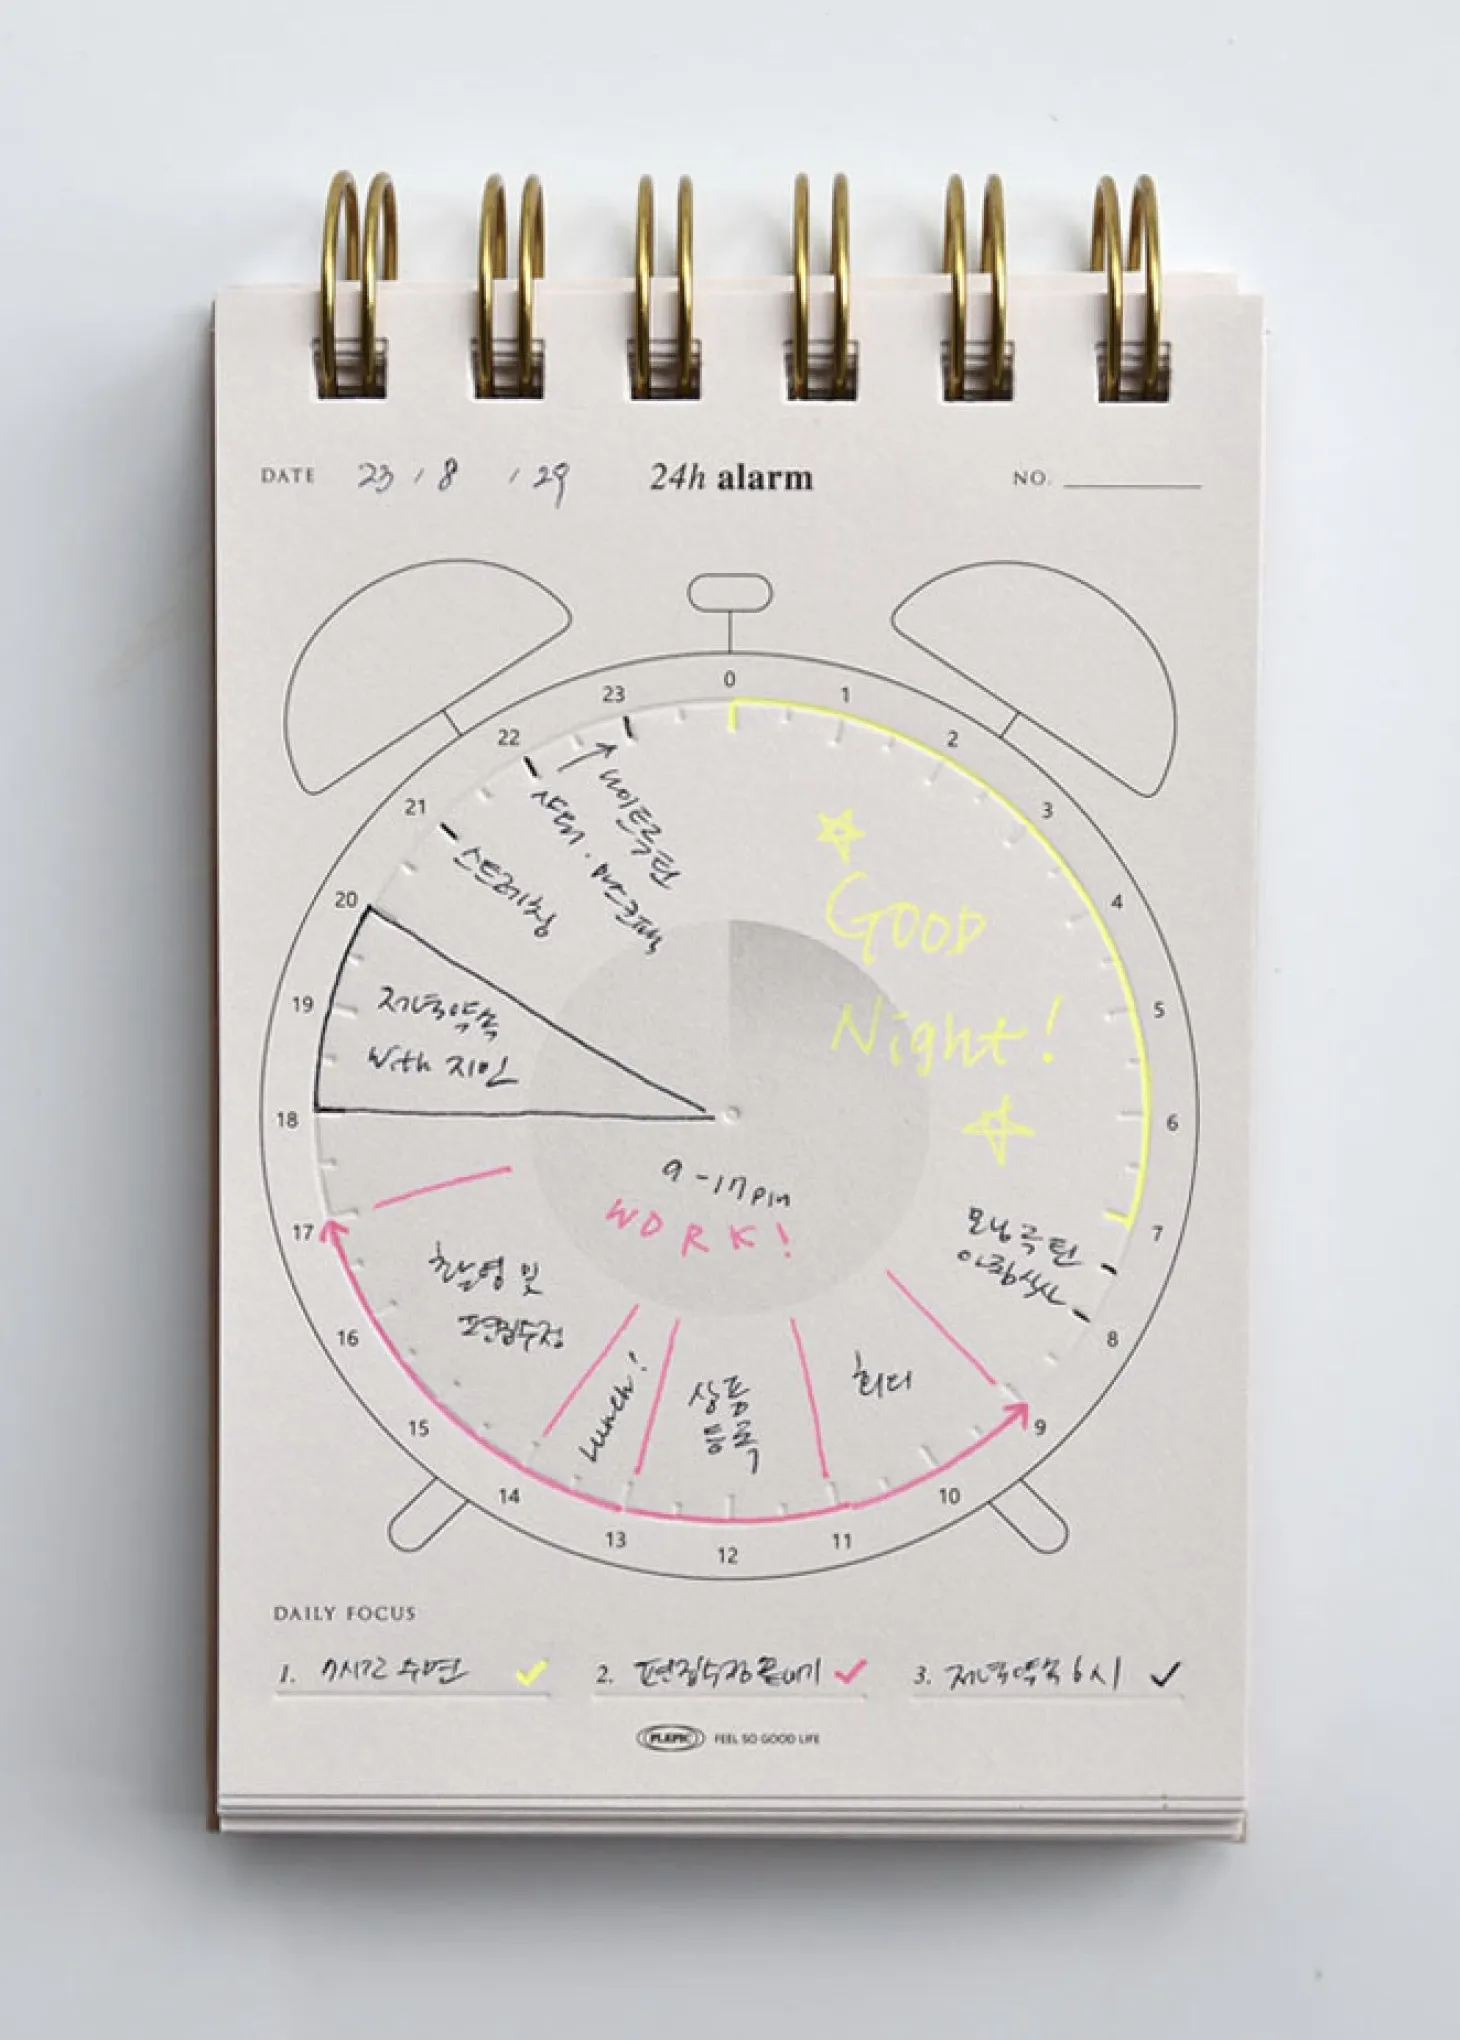 DATE 23 / 8 / 29
24h alarm
NO.
0
1
2
3
4
5
6
7
8
9
10
11
12
13
14
15
16
17
18
19
20
21
22
23
나이트루틴
샤워 · 마스크팩
스트레칭
GOOD
Night!
저녁약속
With 지민
9-17pm
WORK!
모닝루틴
아침식사
회의
상품
등록
Lunch!
촬영 및
편집수정
DAILY FOCUS
1. 7시간 수면
2. 편집수정 끝내기
3. 저녁약속 6시
PLEPIC FEEL SO GOOD LIFE